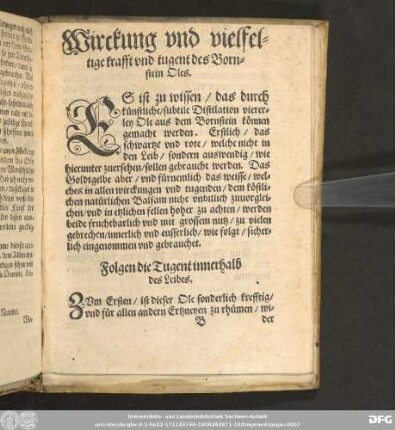 Wirckung vnd vielfel-
tige krafft vnd tugent des Born-
stein Oles.
ES ist zu wissen / das durch
künstliche / subtile Distillation vierer-
ley Ole aus dem Bornstein können
gemacht werden. Erstlich / das
schwartze vnd rote / welche nicht in
den Leib / sondern auswendig / wie
hierunter zuersehen / sollen gebraucht werden. Das
Goldtgelbe aber / vnd fürnemlich das weisse / wel-
ches in allen wirckungen vnd tugenden / dem köstli-
chen natürlichen Balsam nicht vnbillich zuuorglei-
chen / vnd in etzlichen fellen höher zu achten / werden
beide fruchtbarlich vnd mit grossem nutz / zu vielen
gebrechen / innerlich vnd eusserlich / wie folgt / sicher-
lich eingenommen vnd gebrauchet.
Folgen die Tugent innerhalb
des Leibes.
ZVm Ersten / ist dieser Ole sonderlich krefftig /
vnd für allen andern Ertzneyen zu rhümen / wi-
B der
Universitäts- und Landesbibliothek Sachsen-Anhalt
DFG